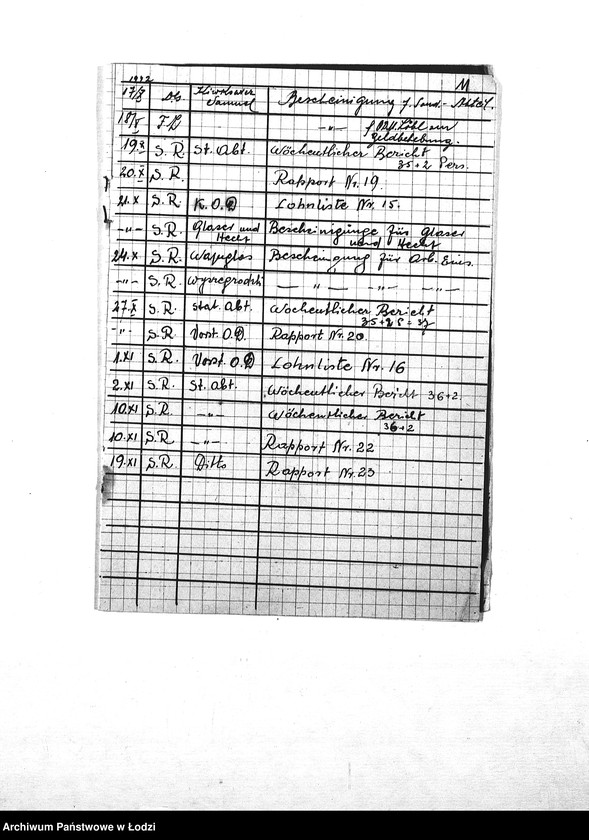 1942 M
17/X Samuel Bescheinigung f. Sond.- Abteil.
18/X -"- f
Geldbehebung.
19.X S.R. St. Abt. Wöchentlicher Bericht
35+2 Pers.
20.X S.R. Rapport Nr. 19.
21.X S.R. K.O.D Lohnliste Nr. 15.
-"- S.R. Glaser und Hecht Bescheinigunge für Glaser
und Hecht
24.X S.R. Bescheinigung für Arb. Eins.
-"- S.R. Wyszegrodzki — " — -"- -"-
27.X S.R. Stat. Abt. Wöchentlicher Bericht
-"- S.R. Vorst. O.D. Rapport Nr. 20.
1.XI S.R. Vorst. O.D Lohnliste Nr. 16
2.XI S.R. St. Abt. Wöchentlicher Bericht 36+2.
10.XI S.R. -"- Wöchentlicher Bericht
36+2
10.XI S.R. -"- Rapport Nr. 22
19.XI S.R. Ditto Rapport Nr. 23
Archiwum Państwowe w Łodzi